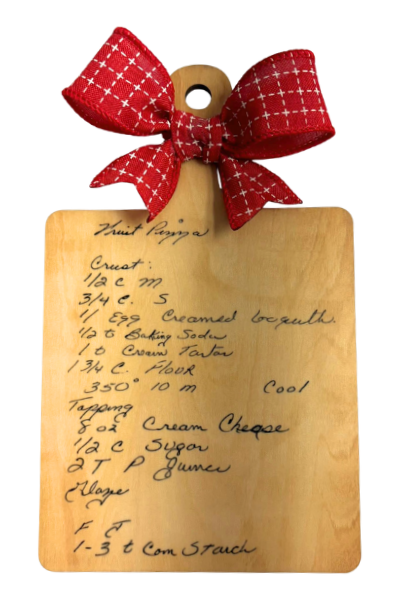 Fruit Pizza
Crust:
1/2 C M
3/4 C. S
1 Egg Creamed together.
1/2 t Baking Soda
1 t Cream Tartar
1 3/4 C. Flour
350° 10 m Cool
Topping
8 oz Cream Cheese
1/2 C Sugar
2 T P Juice
Glaze
F J
1-3 t Corn Starch